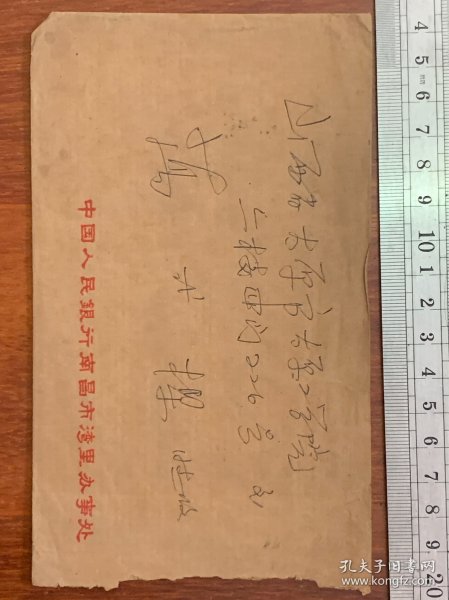 山西省太原市太原工学院
二楼四门226号
中国人民銀行南昌市湾里办事处
4 5 6 7 8 9 10 1 2 3 4 5 6 7 8 9 20
孔夫子旧書网
www.kongfz.com